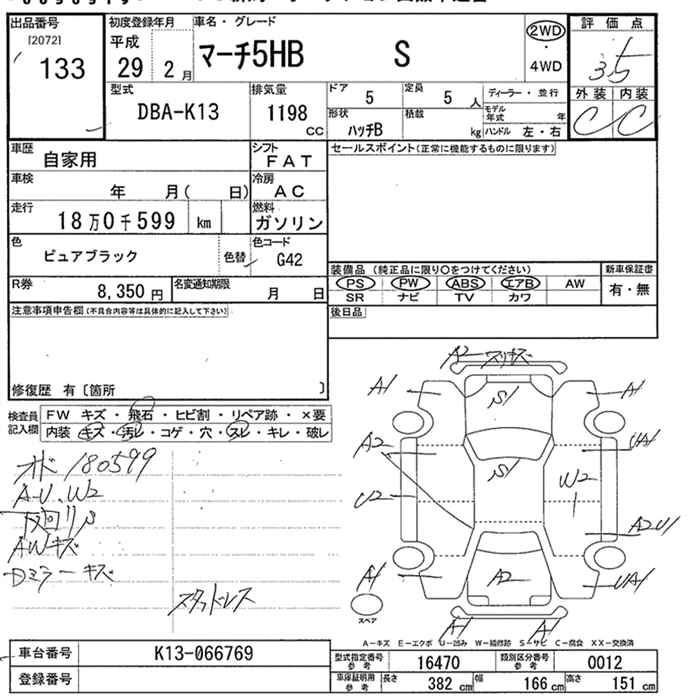 出品番号
[2072]
133
初度登録年月
平成
29 2 月
車名・グレード
マーチ5HB S
2WD
・
4WD
評価点
3.5
外装 内装
C C
型式
DBA-K13
排気量
1198 CC
ドア 5
定員 5 人
形状 ハッチB
積載 kg
ディーラー・並行
モデル年式 年
ハンドル 左・右
車歴 自家用
シフト FAT
車検 年 月( 日)
冷房 AC
走行 18万0千599 km
燃料 ガソリン
色 ピュアブラック 色替
色コード G42
R券 8,350 円
名変通知期限 月 日
セールスポイント(正常に機能するものに限ります)
装備品 (純正品に限り○をつけてください)
PS PW ABS エアB AW
SR ナビ TV カワ
新車保証書
有・無
後日品
注意事項申告欄(不具合内容等は具体的に記入して下さい)
修復歴 有〔箇所 〕
検査員記入欄
FW キズ・飛石・ヒビ割・リペア跡・×要
内装 キズ・汚レ・コゲ・穴・スレ・キレ・破レ
オド 180599
A-U、W2
AWキズ
Dミラーキズ
スタッドレス
A2 スリキズ
A1
S1
A1
A2
UA1
S1
W2
U2
A2U1
A1
A2
UA1
A1
A1
スペア
A-キズ E-エクボ U-凹み W-補修跡 S-サビ C-腐食 XX-交換済
車台番号 K13-066769
登録番号
型式指定番号参考 16470
類別区分番号参考 0012
車庫証明用参考 長さ 382 cm 幅 166 cm 高さ 151 cm